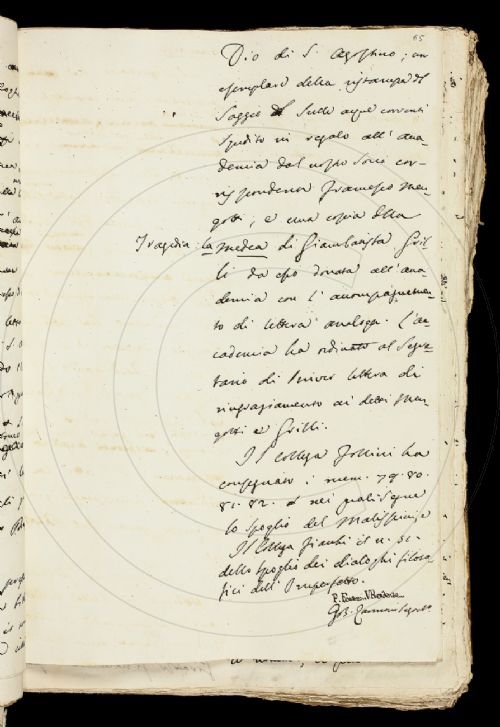 65
Dio di S. Agostino; un
esemplare della ristampa del
Saggio sulle acque correnti
spedito in regalo all' Acca-
demia dal nostro Socio cor-
rispondente Francesco Men-
gotti, e una copia della
Tragedia la Medea di Giambatista Gril-
li da esso donata all' Acca-
demia con l' accompagnamen-
to di lettera analoga. L'Ac-
cademia ha ordinato al Segre-
tario di scriver lettera di
ringraziamento ai detti Men-
gotti e Grilli.
Il Collega Follini ha
consegnato i num. 79. 80.
81. 82. nei quali segue
lo spoglio del
Il Collega Fiacchi il n. 31.
dello spoglio dei dialoghi filoso-
fici dell' Imperfetto.
P. Ferroni
G.B. Zannoni Segret.